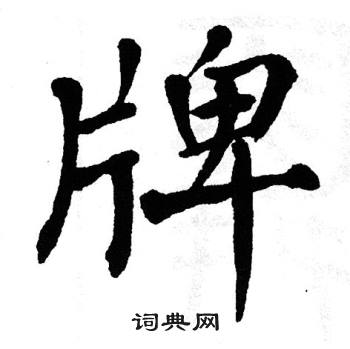 牌
词典网